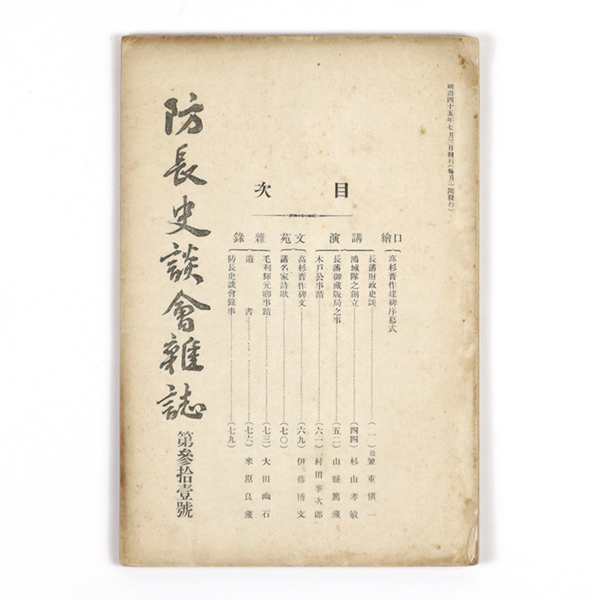 明治四十五年七月三日發行(每月一回發行)
目次
口繪
高杉晋作建碑序幕式
講演
長藩財政史談……(一)兼重愼一
鴻城隊之創立……(四四)杉山孝敏
長藩御藏版局之事……(五二)山縣篤藏
木戶公事蹟……(六一)村田峯次郎
文苑
高杉晋作碑文……(六九)伊藤博文
諸名家詩歌……(七〇)
雜錄
毛利輝元卿事蹟……(七三)大田幽石
遺書……(七六)來原良藏
防長史談會錄事……(七九)
防長史談會雜誌
第參拾壹號